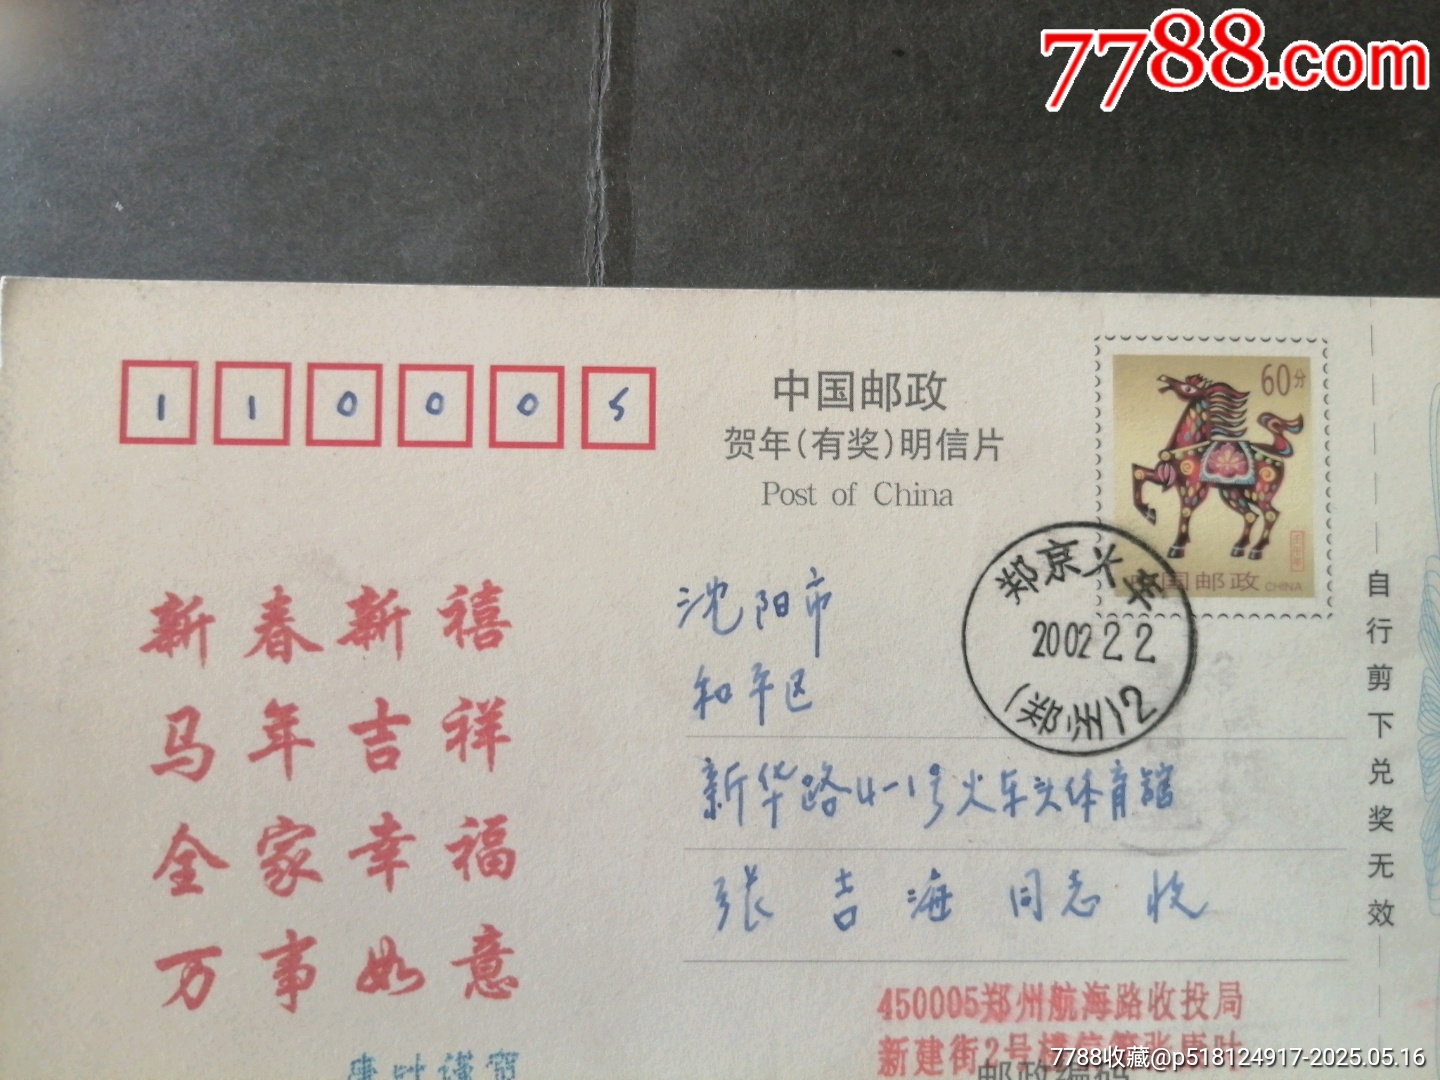 7788.com
110005
中国邮政
贺年(有奖)明信片
Post of China
60分
中国邮政 CHINA
郑京火车
2002 2 2
(郑州)2
新春新禧
马年吉祥
全家幸福
万事如意
沈阳市
和平区
新华路4-1号火车头体育馆
张吉海同志收
自行剪下兑奖无效
450005郑州航海路收投局
新建街2号
邮政编码
7788收藏@p518124917-2025.05.16